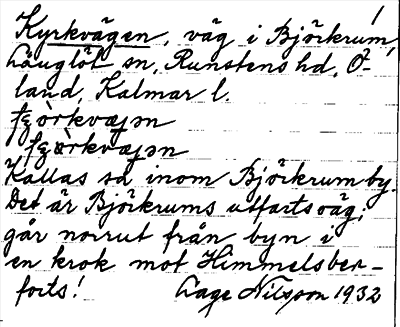 Kyrkvägen, väg i Björkrum,
Långlöt sn, Runstens hd, Ö-
land, Kalmar l.
Kallas så inom Björkrum by.
Det är Björkrums utfartsväg;
går norrut från byn i
en krok mot Himmelsber-
forts! Åage Nilsson 1932